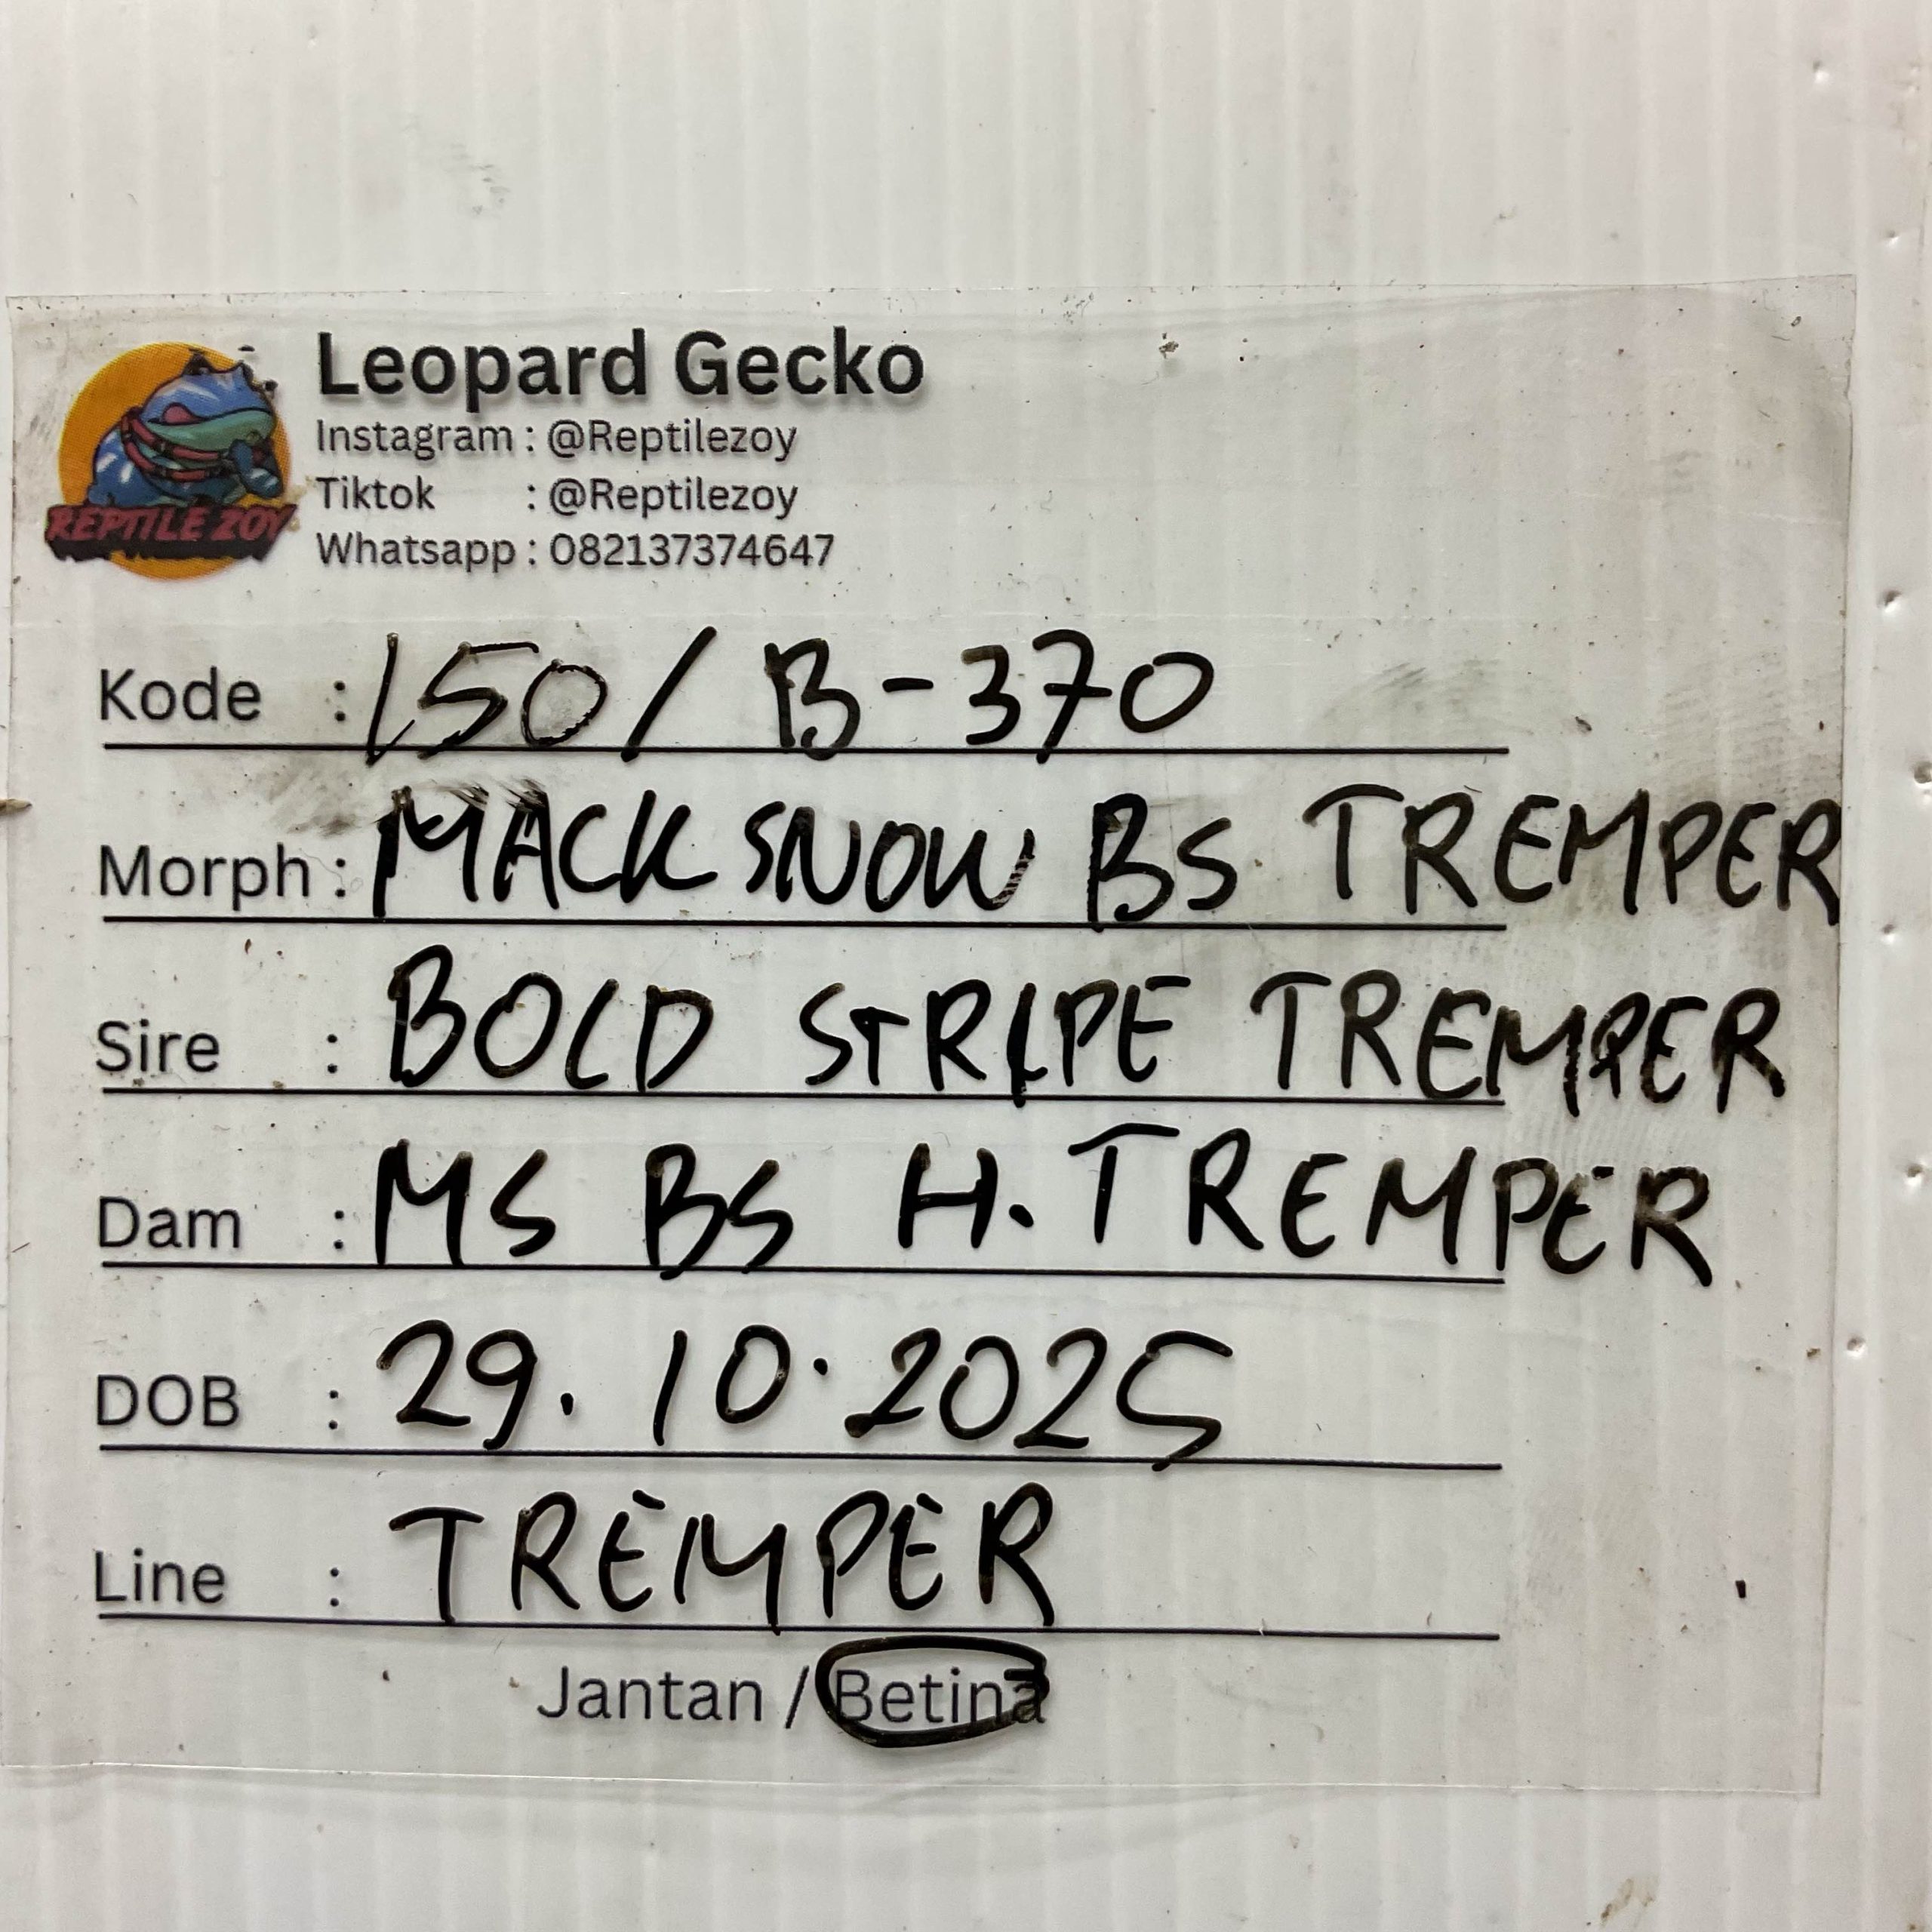 Leopard Gecko
Instagram : @Reptilezoy
Tiktok : @Reptilezoy
Whatsapp : 082137374647
REPTILE ZOY
Kode : 150/ B-370
Morph : MACK SNOW BS TREMPER
Sire : BOLD STRIPE TREMPER
Dam : MS BS H. TREMPER
DOB : 29.10.2025
Line : TREMPER
Jantan / Betina